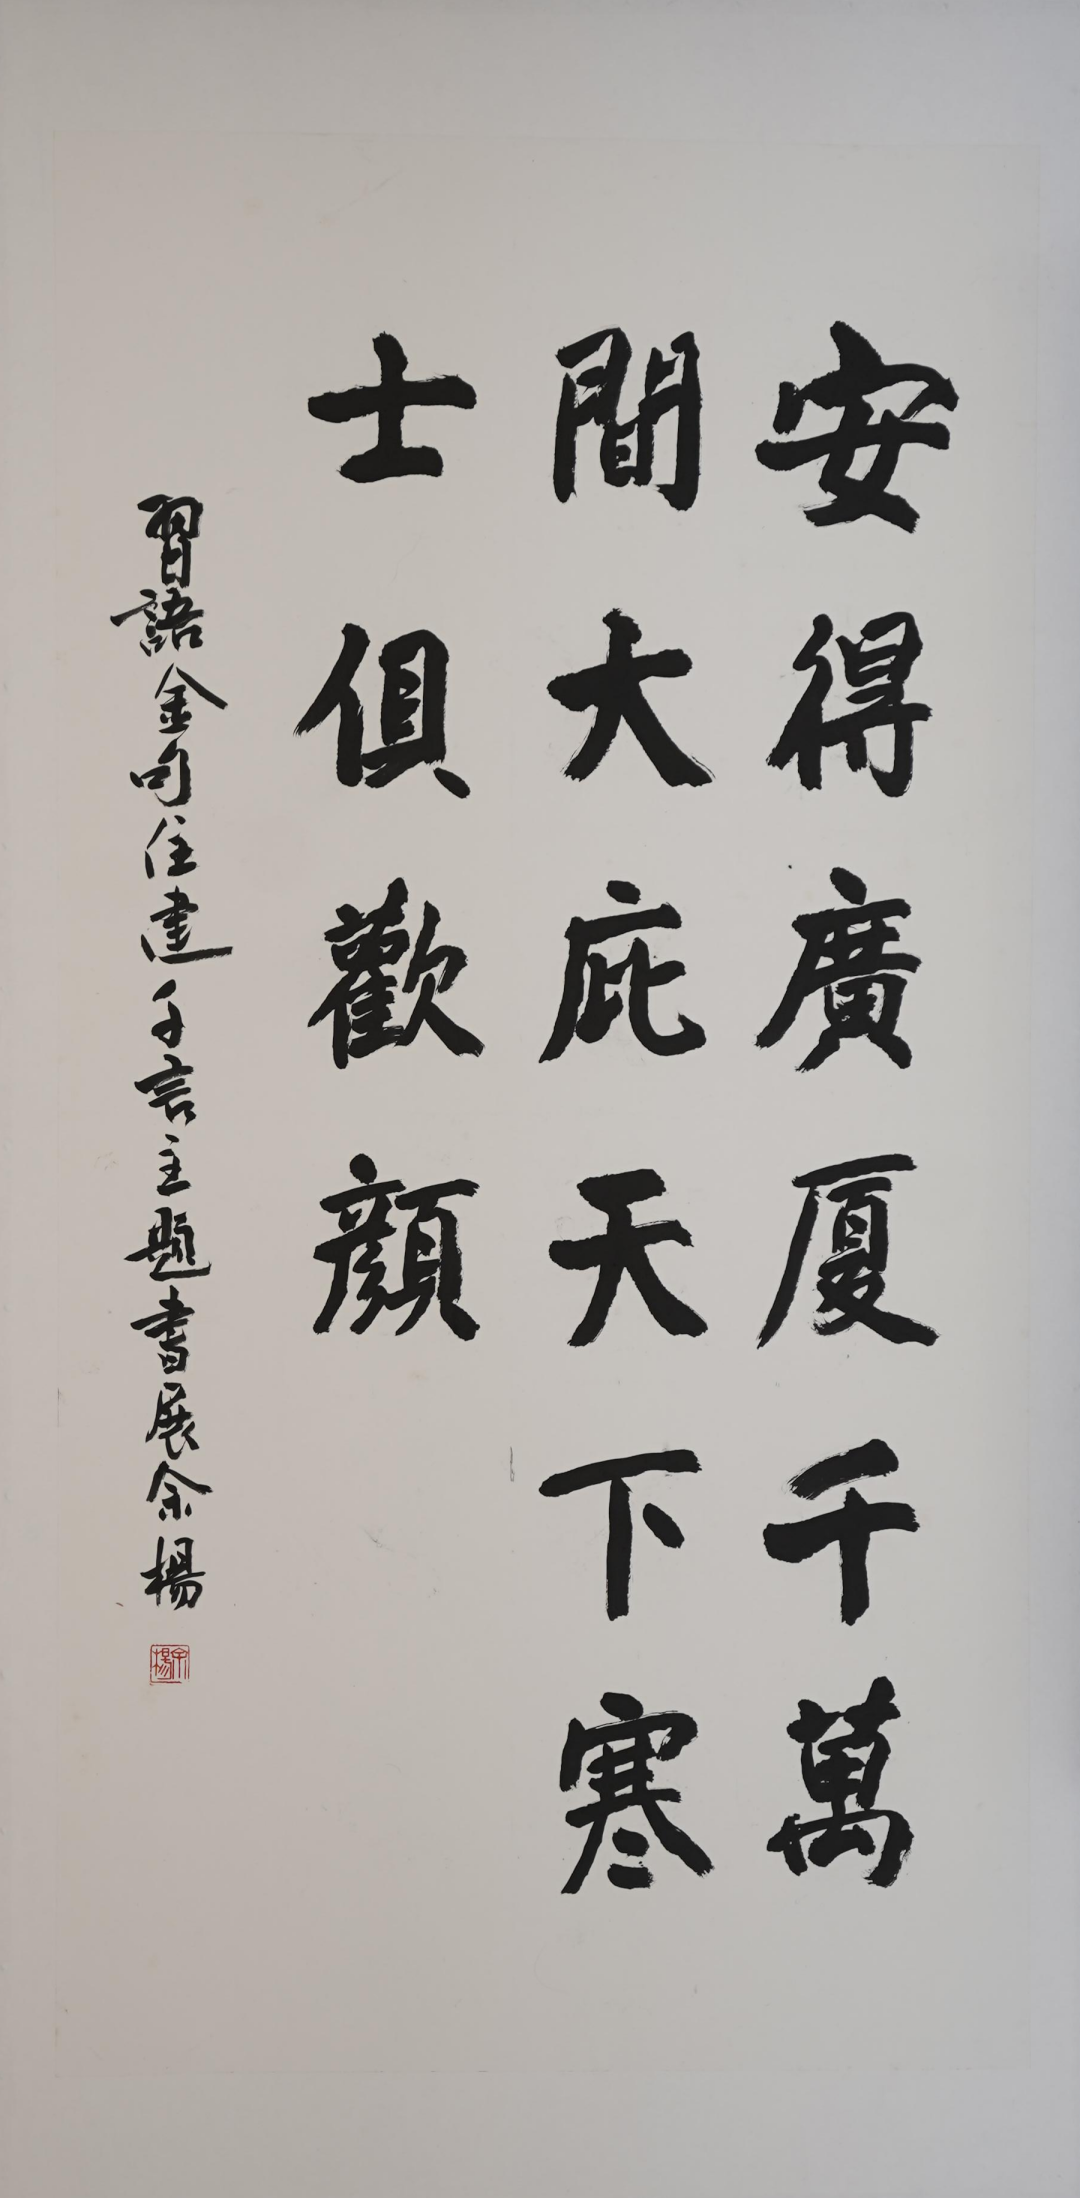 安得廣厦千萬
間大庇天下寒
士俱歡顔
習語金句住建千言主題書展余楊
余楊